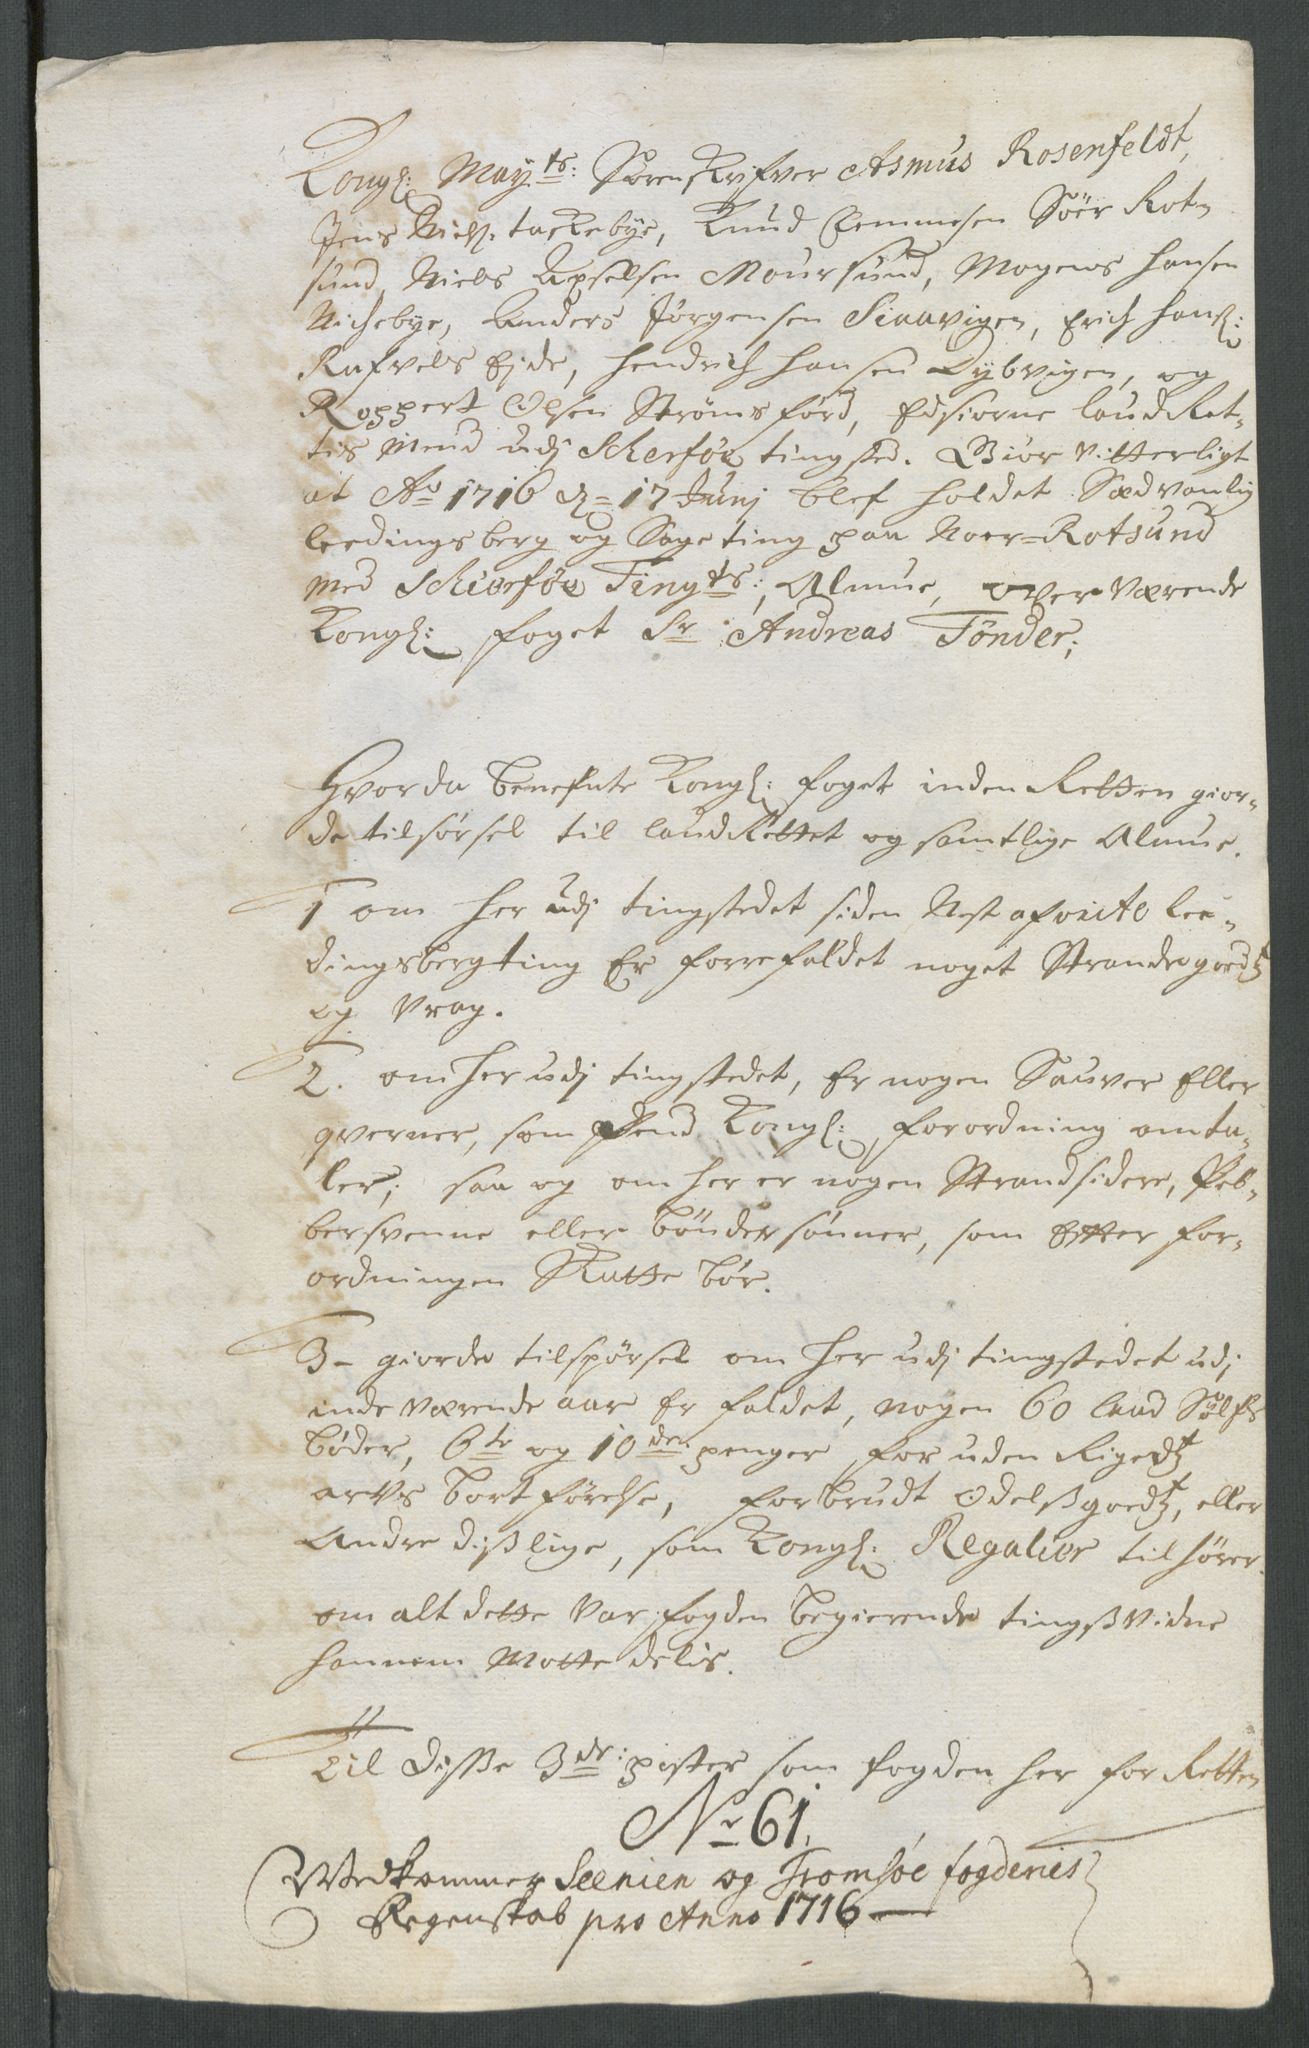 Kongl: Mayts: Sorenskrifver Asmus Rosenfeldt,
Jens Niels: tackebye, Knud Clemmesen Söer Rot-
sund, Niels Axselsen Maursund, Mogens Hansen
Nichebye, Anders Jørgensen Siaavigen, Erich Hans:
Rafvels Ejde, Hendrich Hansen Dybvigen, og
Roppert Olsen Strømsfiord, Edsvorne laud Ret-
tis Mend udj Scherføe tingsted. Giør Vitterligt
at Ao 1716 d= 17 Junj blef holdet Sædvanlig
leedingsberg og Sage ting paa Noer-Rotsund
med Schierføe Tingts: Almue, overværende
Kongl: foged Sr Andreas Tønder;
Hvor da benefnte Kongl: foget inden Retten gior-
de tilsørsel til laud Rettet og samtlige Almue.
1 om her udj tingstedet siden Nest afvicte lee-
dingsbergting Er forrefaldet noget Strandegoedz
og Vrag.
2. om her udj tingstedet, Er nogen Sauver Eller
qverner, som Kongl: forordning omta-
ler; saa og om her er nogen Strandsidere, Peb-
bersvenne eller bönder sönner, som Efter for-
ordningen Skatte bør.
3- giorde tilspörsel om her udj tingstedet udj
inde værende aar Er faldet, nogen 60 laud Sölfs
bøder, 6te og 10de penger, for uden Rigedz
arvs bortførelse, forbrudt Odelsgoedz, eller
Andre disslige, som Kongl: Regalier tilhører.
om alt dette var fogden begierende tingssvidne
hannem Motte delis.
Til disse 3de: poster som fogden her for Retten
No 61.
Vedkommer Seenien og Tromsøe fogderies
Regenskab pro Anno 1716